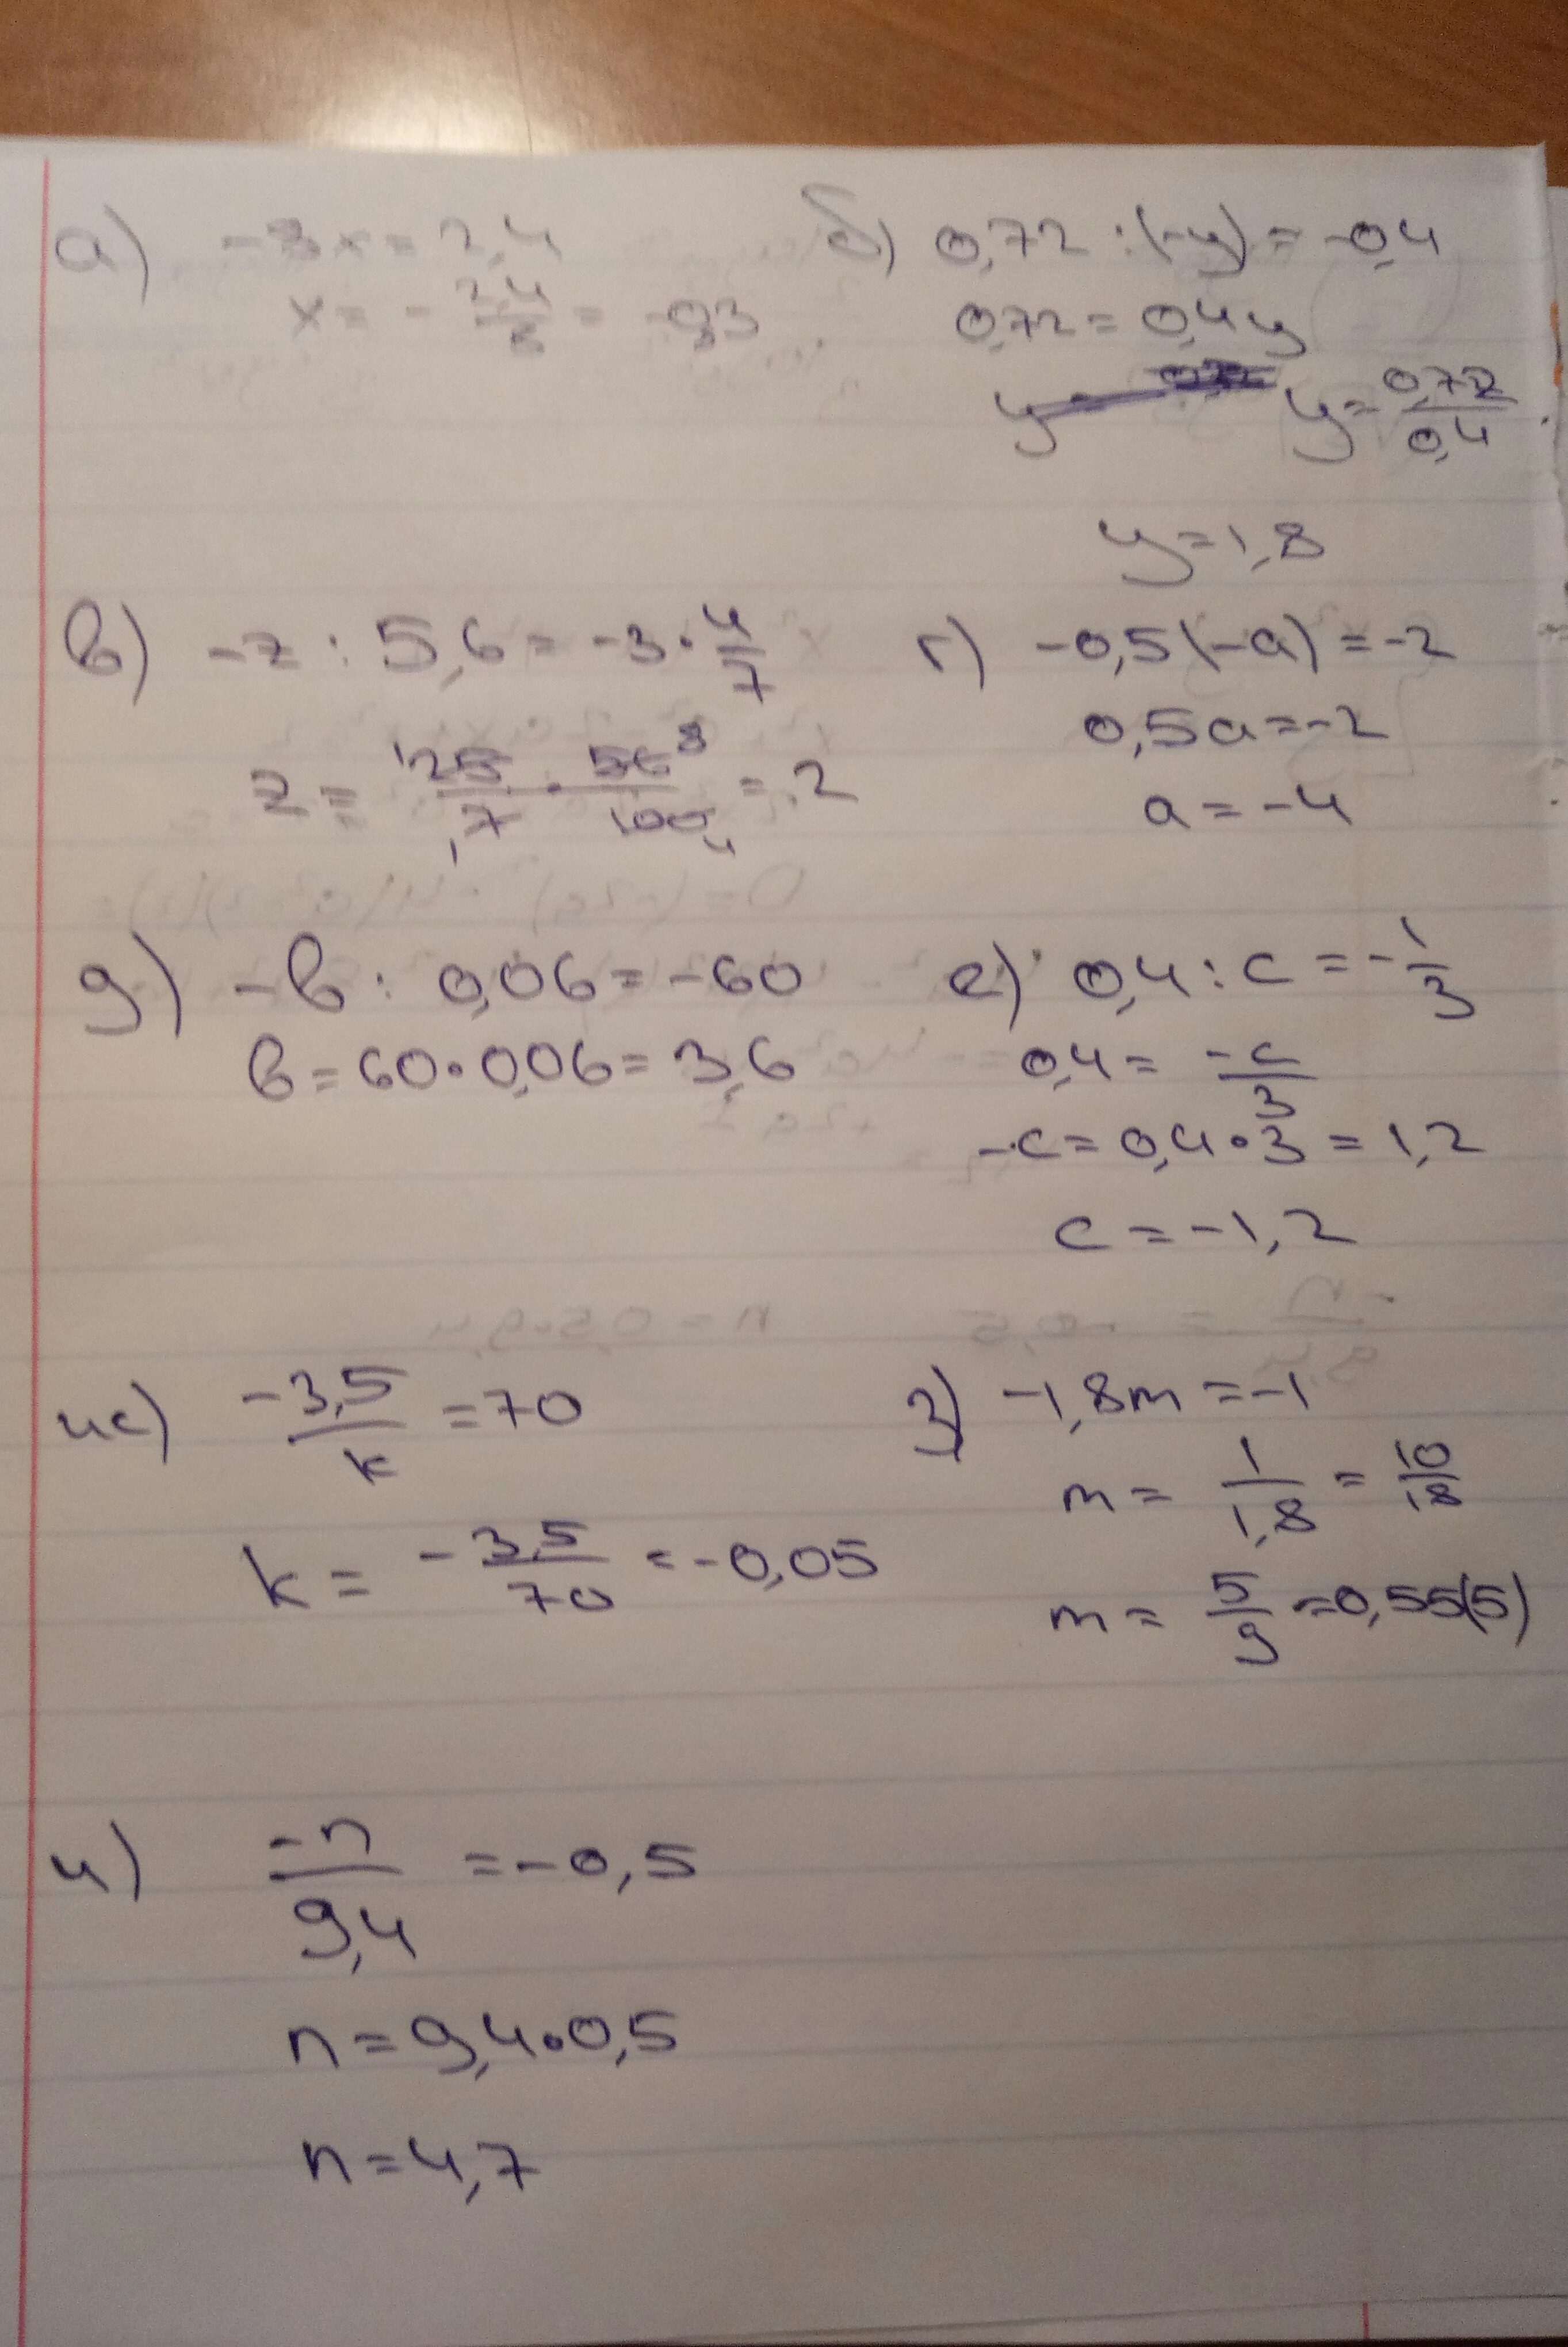 а) -8x = 2,4
x = - 2,4/8 = -0,3
б) 0,72 : (-y) = -0,4
0,72 = 0,4y
y = 0,72/0,4
y = 1,8
в) -z : 5,6 = -3 · 4/7
z = 25/7 · 56/100 = 2
г) -0,5(-a) = -2
0,5a = -2
a = -4
д) -b : 0,06 = -60
b = 60 · 0,06 = 3,6
е) 0,4 : c = - 1/3
0,4 = -c/3
-c = 0,4 · 3 = 1,2
c = -1,2
ж) -3,5/k = 70
k = -3,5/70 = -0,05
з) -1,8m = -1
m = 1/1,8 = 10/18
m = 5/9 = 0,55(5)
и) -n/9,4 = -0,5
n = 9,4 · 0,5
n = 4,7